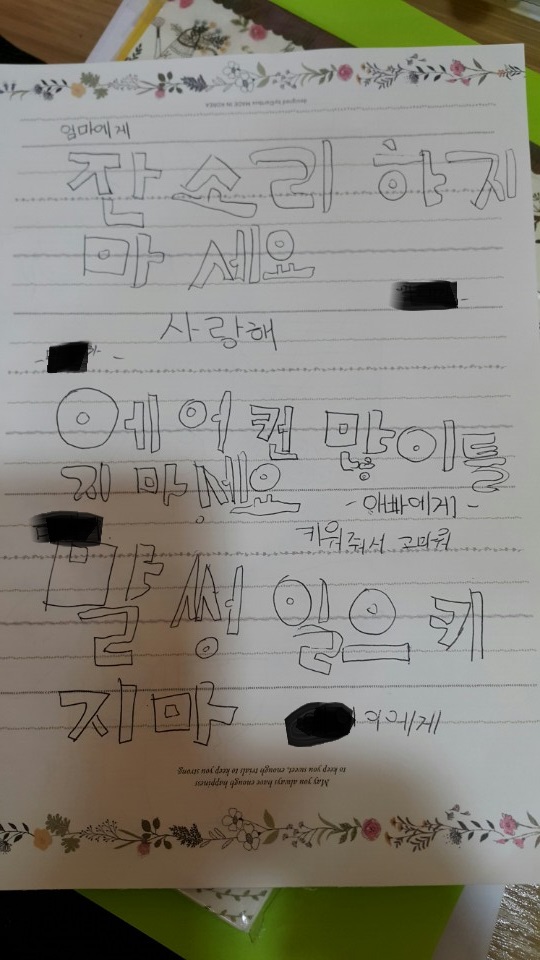 엄마에게
잔소리 하지
마세요
사랑해
에어컨 많이틀
지마세요
-아빠에게-
키워줘서 고마워
말썽 일으키
지마
에게
May you always have enough happiness
to keep you sweet, enough trials to keep you strong